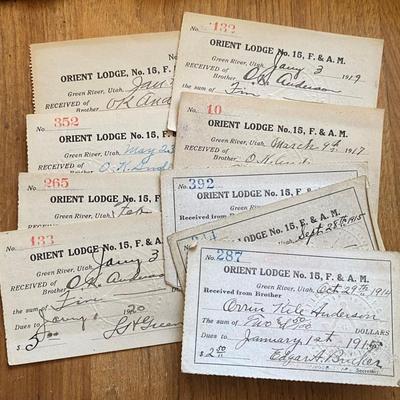 ORIENT LODGE No. 15, F.
Green River, Utah,
RECEIVED of
Brother
the sum
No. 132
ORIENT LODGE No. 15, F. & A. M.
Green River, Utah, Jany 3 1919
RECEIVED of
Brother O. K. Anderson
the sum of Five
352
ORIENT LODGE No. 15, F.
Green River, Utah, May 23
RECEIVED of
Brother
No. 10
ORIENT LODGE No. 15, F. & A. M.
Green River, Utah, March 9th 1917
RECEIVED of
Brother
No. 265
ORIENT LODGE No. 15, F. &
Green River, Utah, Feb
RECEIVED
No. 392
ORIENT LODGE No. 15, F. & A. M.
Green River, Utah,
Received from
No. 133
ORIENT LODGE No. 15, F. & A.
Green River, Utah, Jany 3
RECEIVED of
Brother O. K. Anderson
the sum of Five
Dues to Jany 1920
$5.00
No.
ORIENT LODGE No. 15, F. & A. M.
Green River, Utah, Sept. 28th 1915
Received from
Brother
No. 287
ORIENT LODGE No. 15, F. & A. M.
Green River, Utah, Oct 29th 1914
Received from Brother
Orrin Kile Anderson
The sum of Two 50/100 DOLLARS
Dues to January 1st 1915
$2.50 Edgar H. Bricker
Secretary